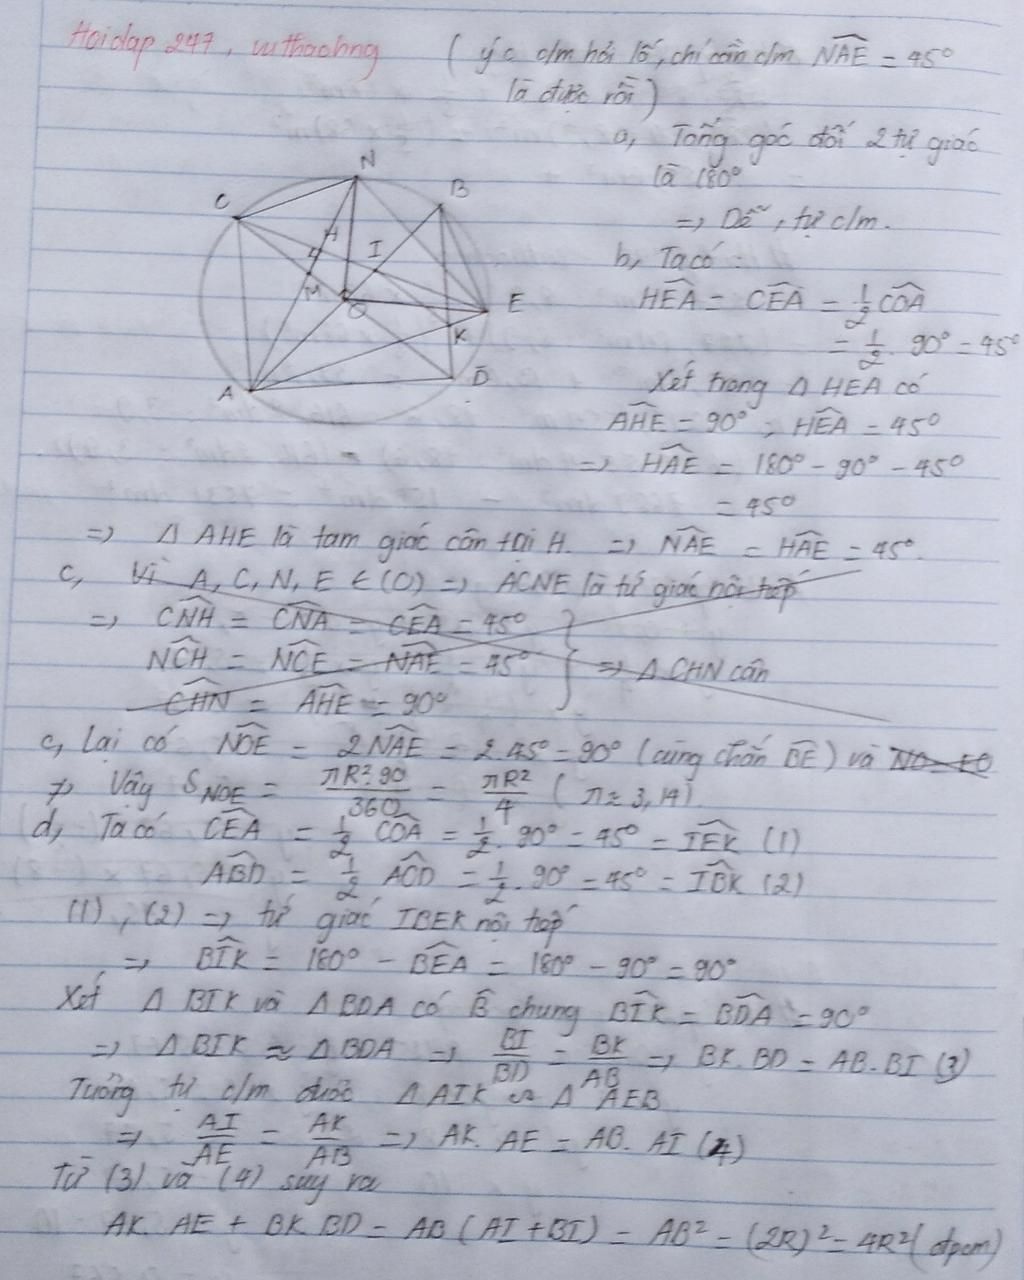 Hoidap 247, vuthaohng
( ý c c/m hơi lố, chỉ cần c/m \widehat{NAE} = 45°
là được rồi )
a, Tổng góc đối 2 tứ giác
là 180°
=> Dễ, tự c/m.
b, Ta có :
\widehat{HEA} = \widehat{CEA} = \frac{1}{2} \widehat{COA}
= \frac{1}{2} . 90° = 45°
Xét trong Δ HEA có
\widehat{AHE} = 90° ; \widehat{HEA} = 45°
=> \widehat{HAE} = 180° - 90° - 45°
= 45°
C
N
B
H
I
M
O
E
K
A
D
=> Δ AHE là tam giác cân tại H. => \widehat{NAE} = \widehat{HAE} = 45°.
c, Vì A, C, N, E ∈ (O) => ACNE là tứ giác nội tiếp
=> \widehat{CNH} = \widehat{CNA} = \widehat{CEA} = 45°
\widehat{NCH} = \widehat{NCE} = \widehat{NAE} = 45° => Δ CHN cân
\widehat{CHN} = \widehat{AHE} = 90°
c, Lại có \widehat{NOE} = 2\widehat{NAE} = 2.45° = 90° (cùng chắn \widehat{BE}) và NO = EO
=> Vậy S_{NOE} = \frac{πR².90}{360} = \frac{πR²}{4} ( π ≈ 3,14)
d, Ta có \widehat{CEA} = \frac{1}{2} \widehat{COA} = \frac{1}{2}. 90° = 45° = \widehat{IEK} (1)
\widehat{ABD} = \frac{1}{2} \widehat{AOD} = \frac{1}{2}. 90° = 45° = \widehat{IBK} (2)
(1), (2) => tứ giác IBEK nội tiếp
=> \widehat{BIK} = 180° - \widehat{BEA} = 180° - 90° = 90°
Xét Δ BIK và Δ BDA có \widehat{B} chung \widehat{BIK} = \widehat{BDA} = 90°
=> Δ BIK ≈ Δ BDA => \frac{BI}{BD} = \frac{BK}{AB} => BK. BD = AB. BI (3)
Tương tự c/m được Δ AIK ∽ Δ AEB
=> \frac{AI}{AE} = \frac{AK}{AB} => AK. AE = AB. AI (4)
Từ (3) và (4) suy ra
AK. AE + BK. BD = AB (AI + BI) = AB² = (2R)² = 4R² ( đpcm)